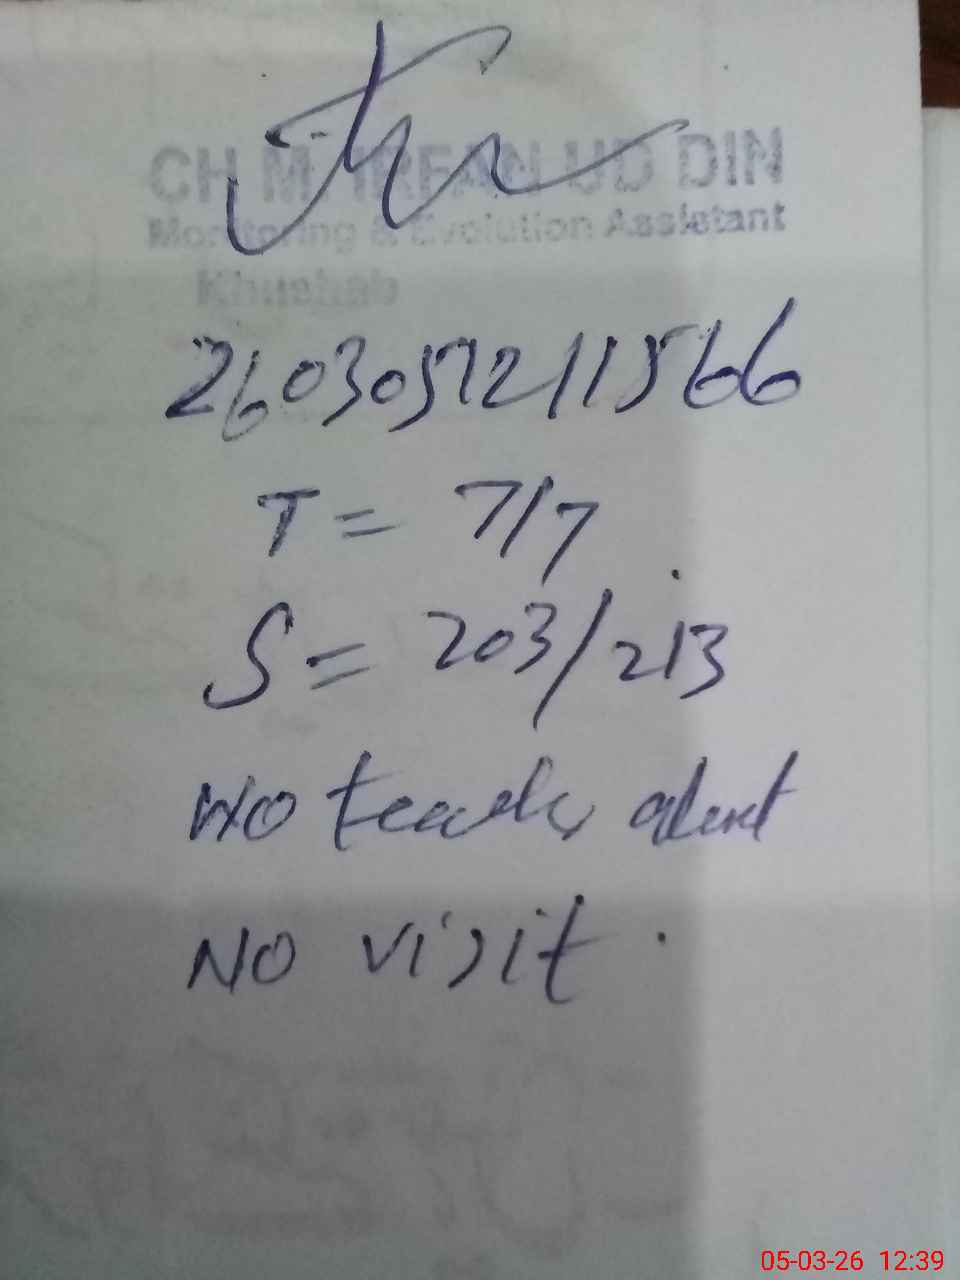 CH M IRFAN UD DIN
Monitoring & Evolution Assistant
Khushab
2603051211566
T = 7/7
S = 203/213
No teacher absent
No visit.
05-03-26 12:39